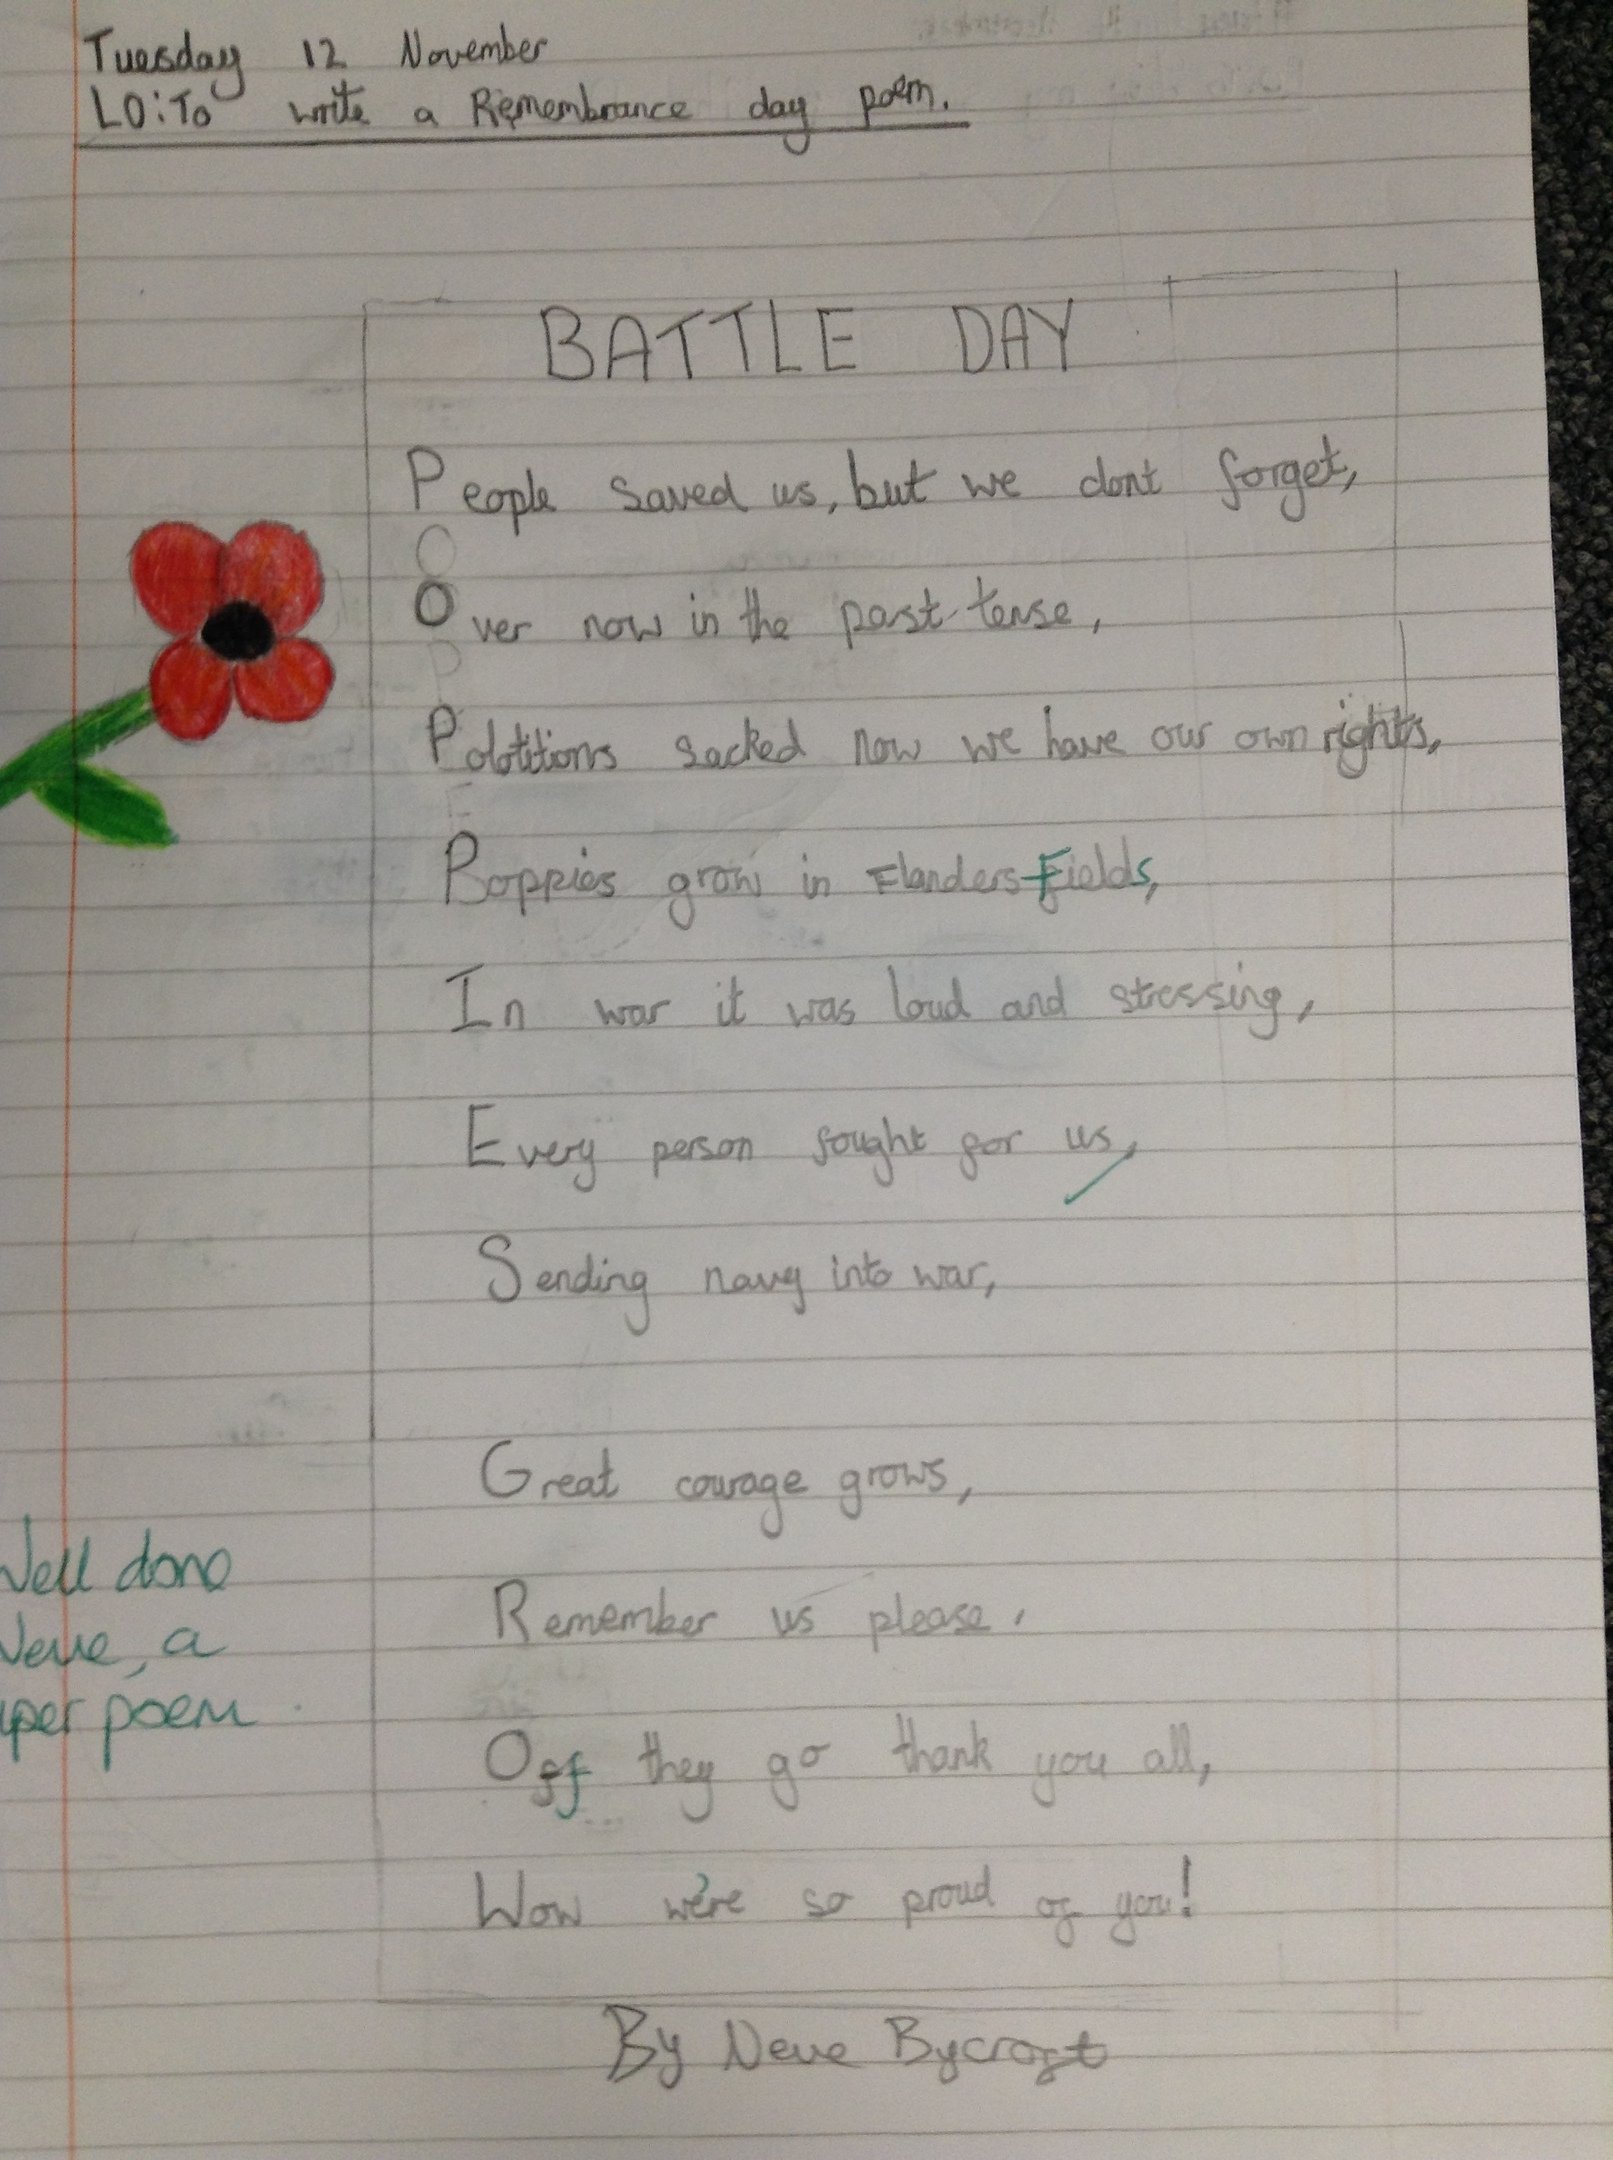 Tuesday 12 November
LO: To write a Remembrance day poem.
BATTLE DAY
People saved us, but we dont forget,
Over now in the past tense,
Polotitions sacked now we have our own rights,
Poppies grow in Flanders Fields,
In war it was loud and stressing,
Every person fought for us,
Sending navy into war,
Great courage grows,
Well done
Neve, a
uper poem
Remember us please,
Off they go thank you all,
Wow we're so proud of you!
By Neve Bycroft